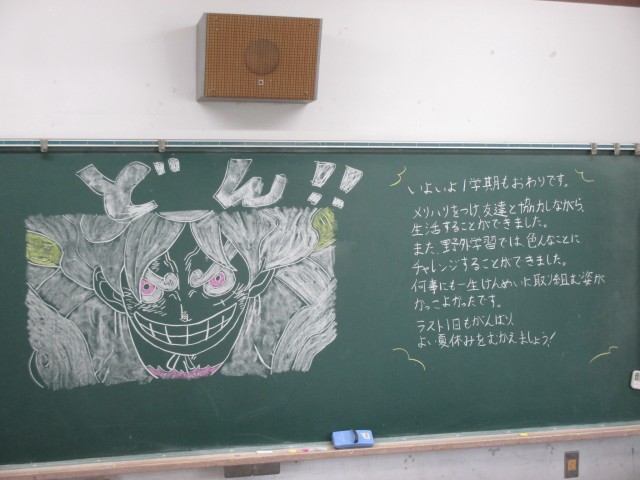 どん!!
いよいよ1学期もおわりです。
メリハリをつけ、友達と協力しながら、
生活することができました。
また、野外学習では、色んなことに
チャレンジすることができました。
何事にも一生けんめいに取り組む姿が
かっこよかったです。
ラスト1日もがんばり、
よい夏休みをむかえましょう!